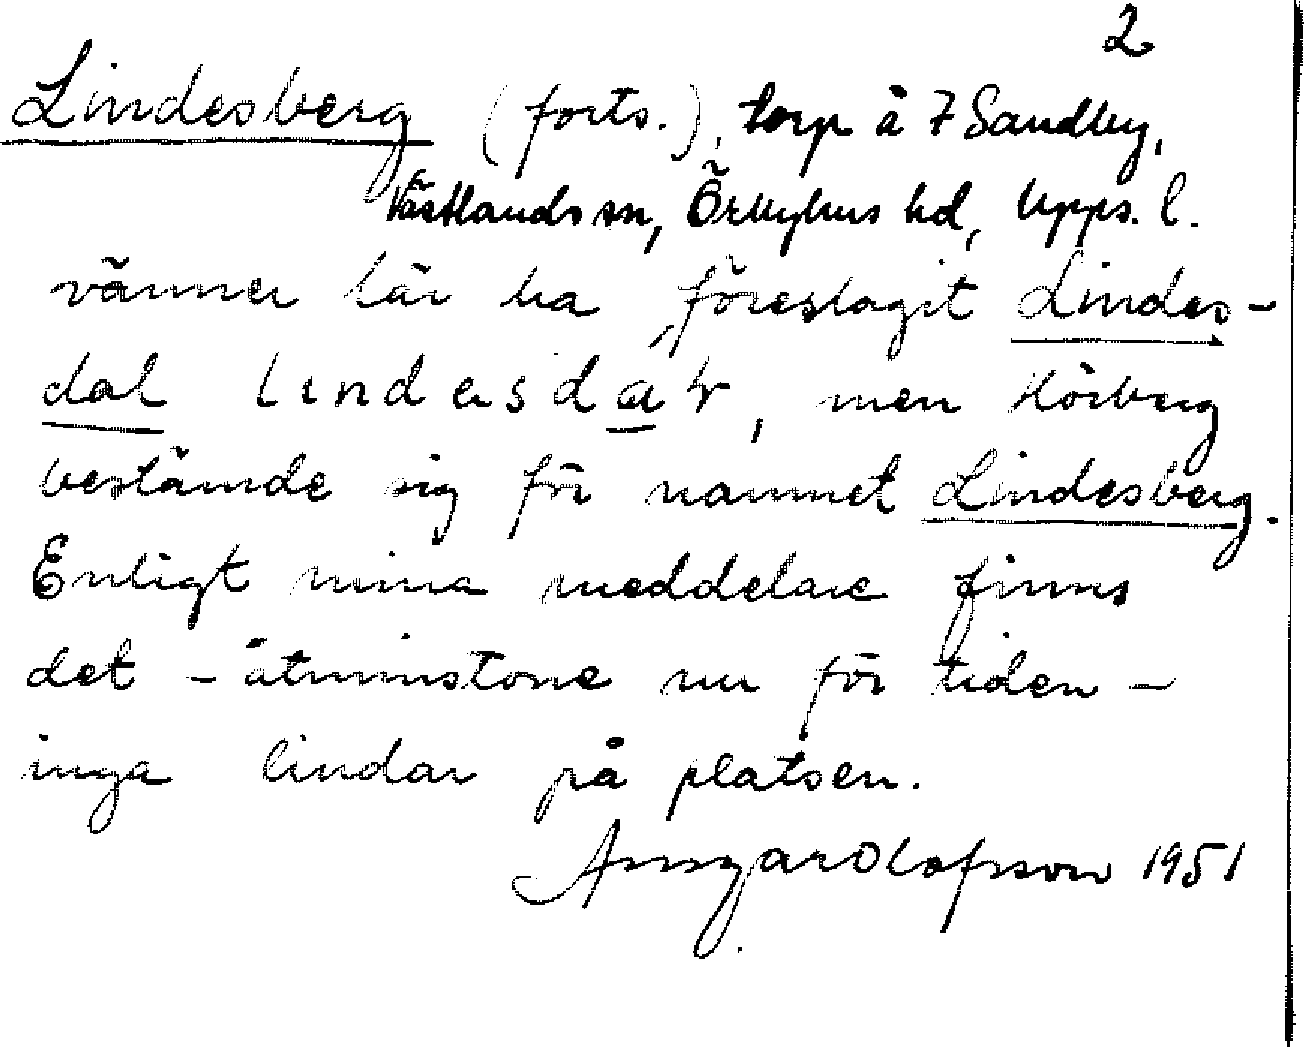 2
Lindesberg (forts.), torp å 7 Sandby,
Västlands sn, Örbyhus hd, Upps. l.
vänner lär ha föreslagit Lindes-
dal lindesdaɫ, men Hörberg
bestämde sig för namnet Lindesberg.
Enligt mina meddelare finns
det - åtminstone nu för tiden -
inga lindar på platsen.
Ansgar Olofsson 1951